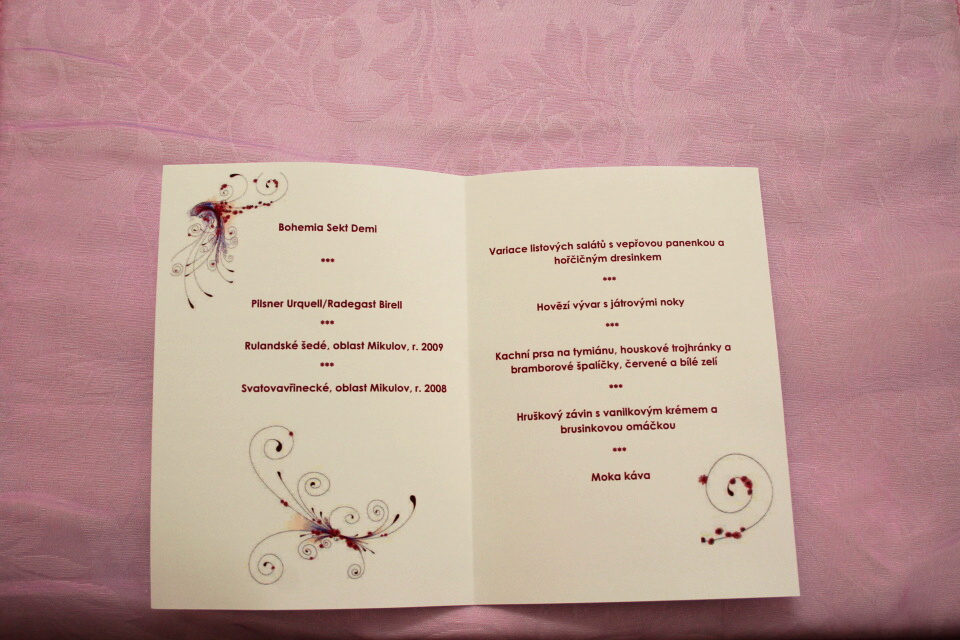 Bohemia Sekt Demi
***
Pilsner Urquell/Radegast Birell
***
Rulandské šedé, oblast Mikulov, r. 2009
***
Svatovavřinecké, oblast Mikulov, r. 2008
Variace listových salátů s vepřovou panenkou a
hořčičným dresinkem
***
Hovězí vývar s játrovými noky
***
Kachní prsa na tymiánu, houskové trojhránky a
bramborové špalíčky, červené a bílé zelí
***
Hruškový závin s vanilkovým krémem a
brusinkovou omáčkou
***
Moka káva